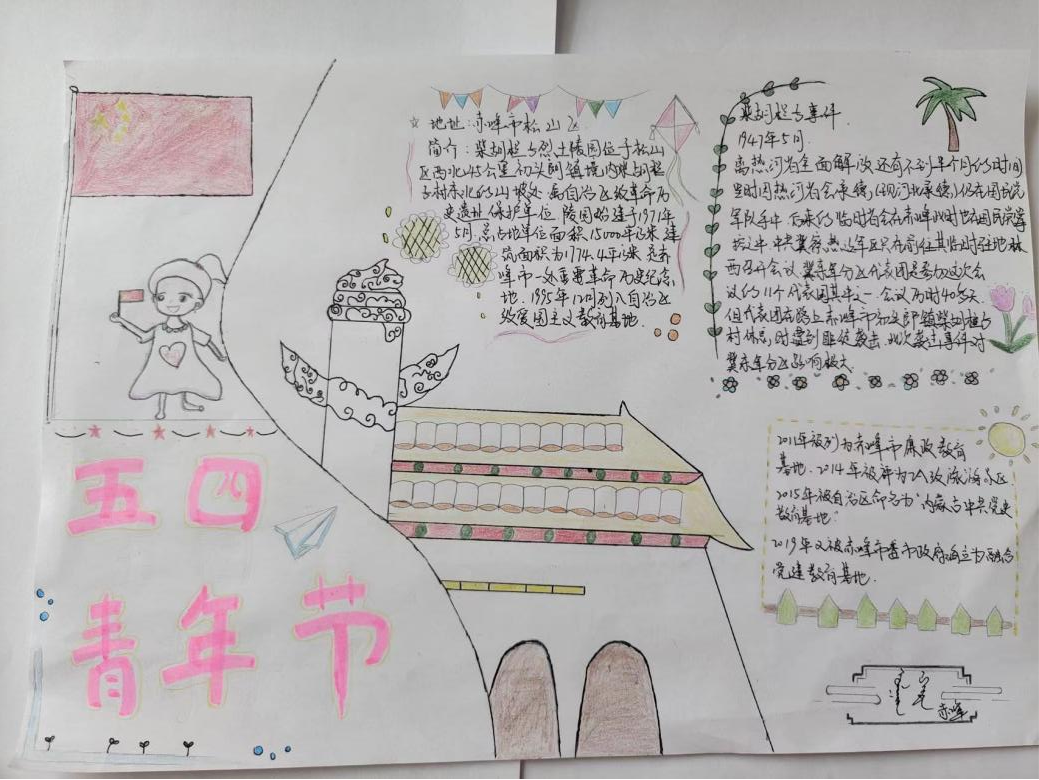 五四
青年节
地址:赤峰市松山区
简介:柴胡栏子烈士陵园位于松山
区西北45公里初头朗镇境内柴胡栏
子村东北的山坡处.属自治区级革命历
史遗址保护单位 陵园始建于1971年
5月.总占地单位面积15000平方米 建
筑面积为1774.4平方米 是赤
峰市一处重要革命历史纪念
地.1995年12月列入自治区
级爱国主义教育基地.
柴胡栏子事件.
1947年5月.
离热河省全面解放还有不到半个月的时间
当时因热河省会承德(现河北承德)仍在国民党
军队手中 后来的临时省会在赤峰此时也在国民党掌
控之中 中共冀察热辽军区只有前往其临时驻地林
西召开会议 冀东军分区代表团是参加这次会
议的11个代表团其中之一.会议历时40多天.
但代表团在路上赤峰市初头朗镇柴胡栏子
村休息时遭到匪徒袭击.此次袭击事件对
冀东军分区影响极大.
2011年被列为赤峰市廉政教育
基地.2014年被评为2A级旅游景区.
2015年被自治区命名为"内蒙古中共党史
教育基地"
2019年又被赤峰市委市政府确立为融合
党建教育基地.
赤峰